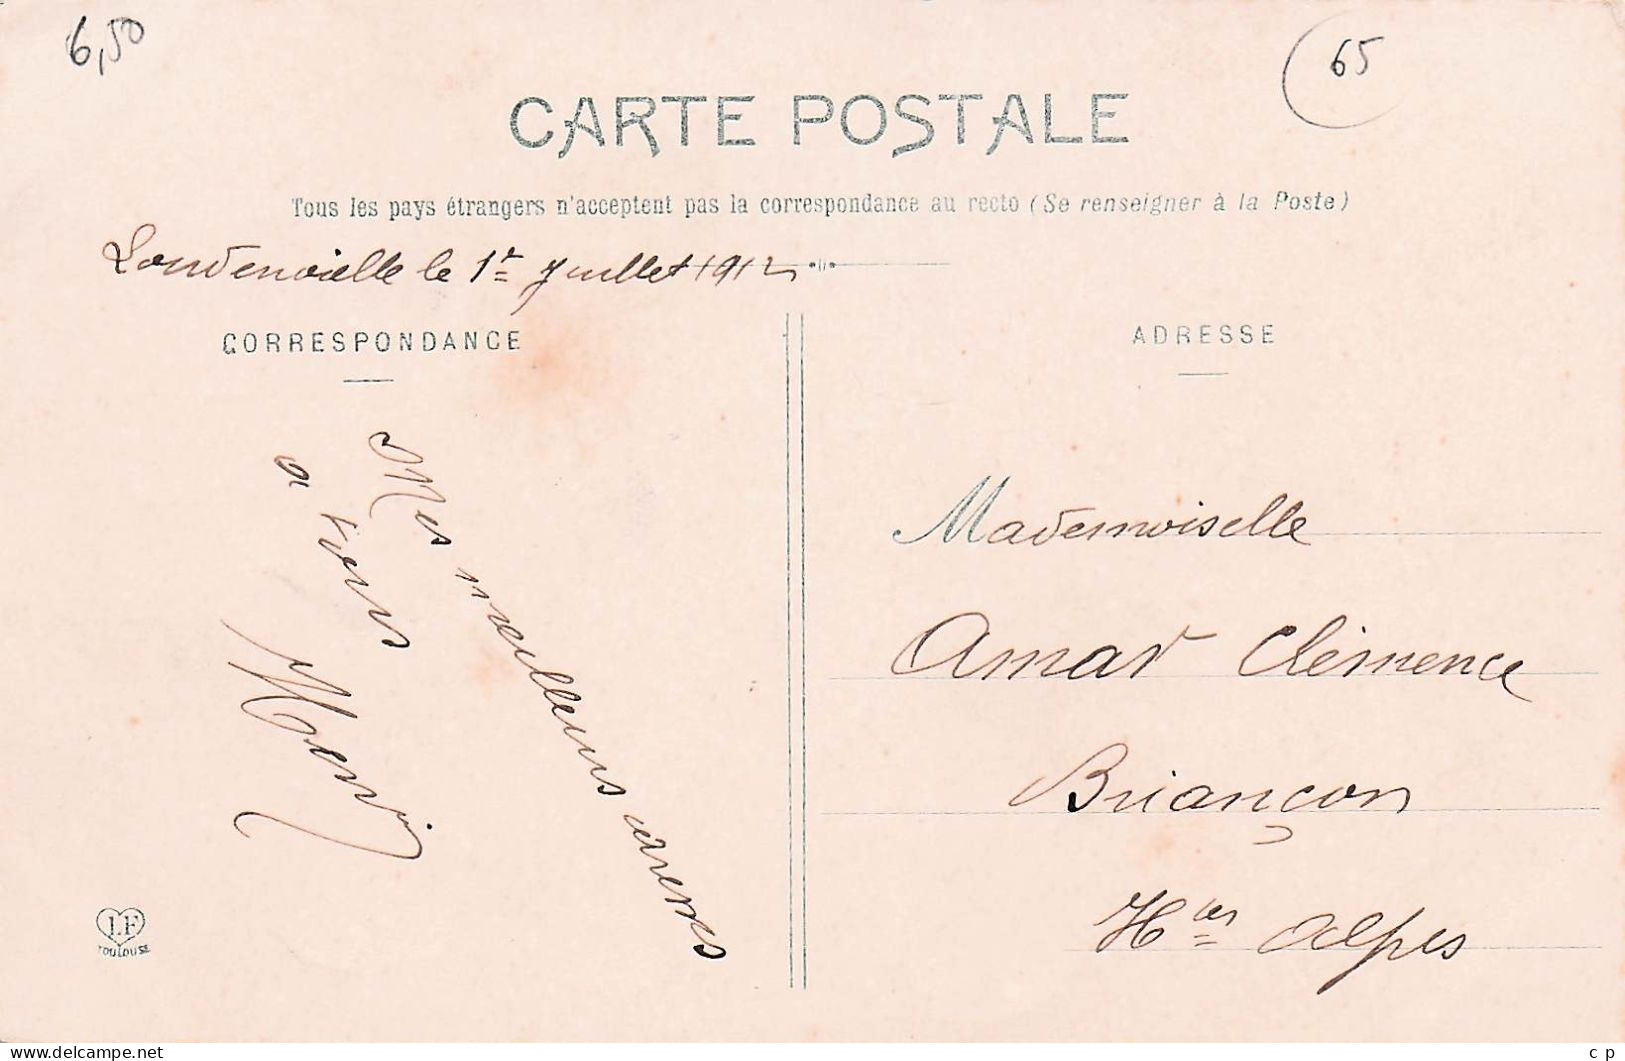 6,50
65
CARTE POSTALE
Tous les pays étrangers n'acceptent pas la correspondance au recto (Se renseigner à la Poste)
Loudenvielle le 1er Juillet 1912
CORRESPONDANCE
Mes meilleurs
à vous
Henri
LF
TOULOUSE
ADRESSE
Mademoiselle
Amar Clémence
Briançon
Htes Alpes
delcampe.net
c p